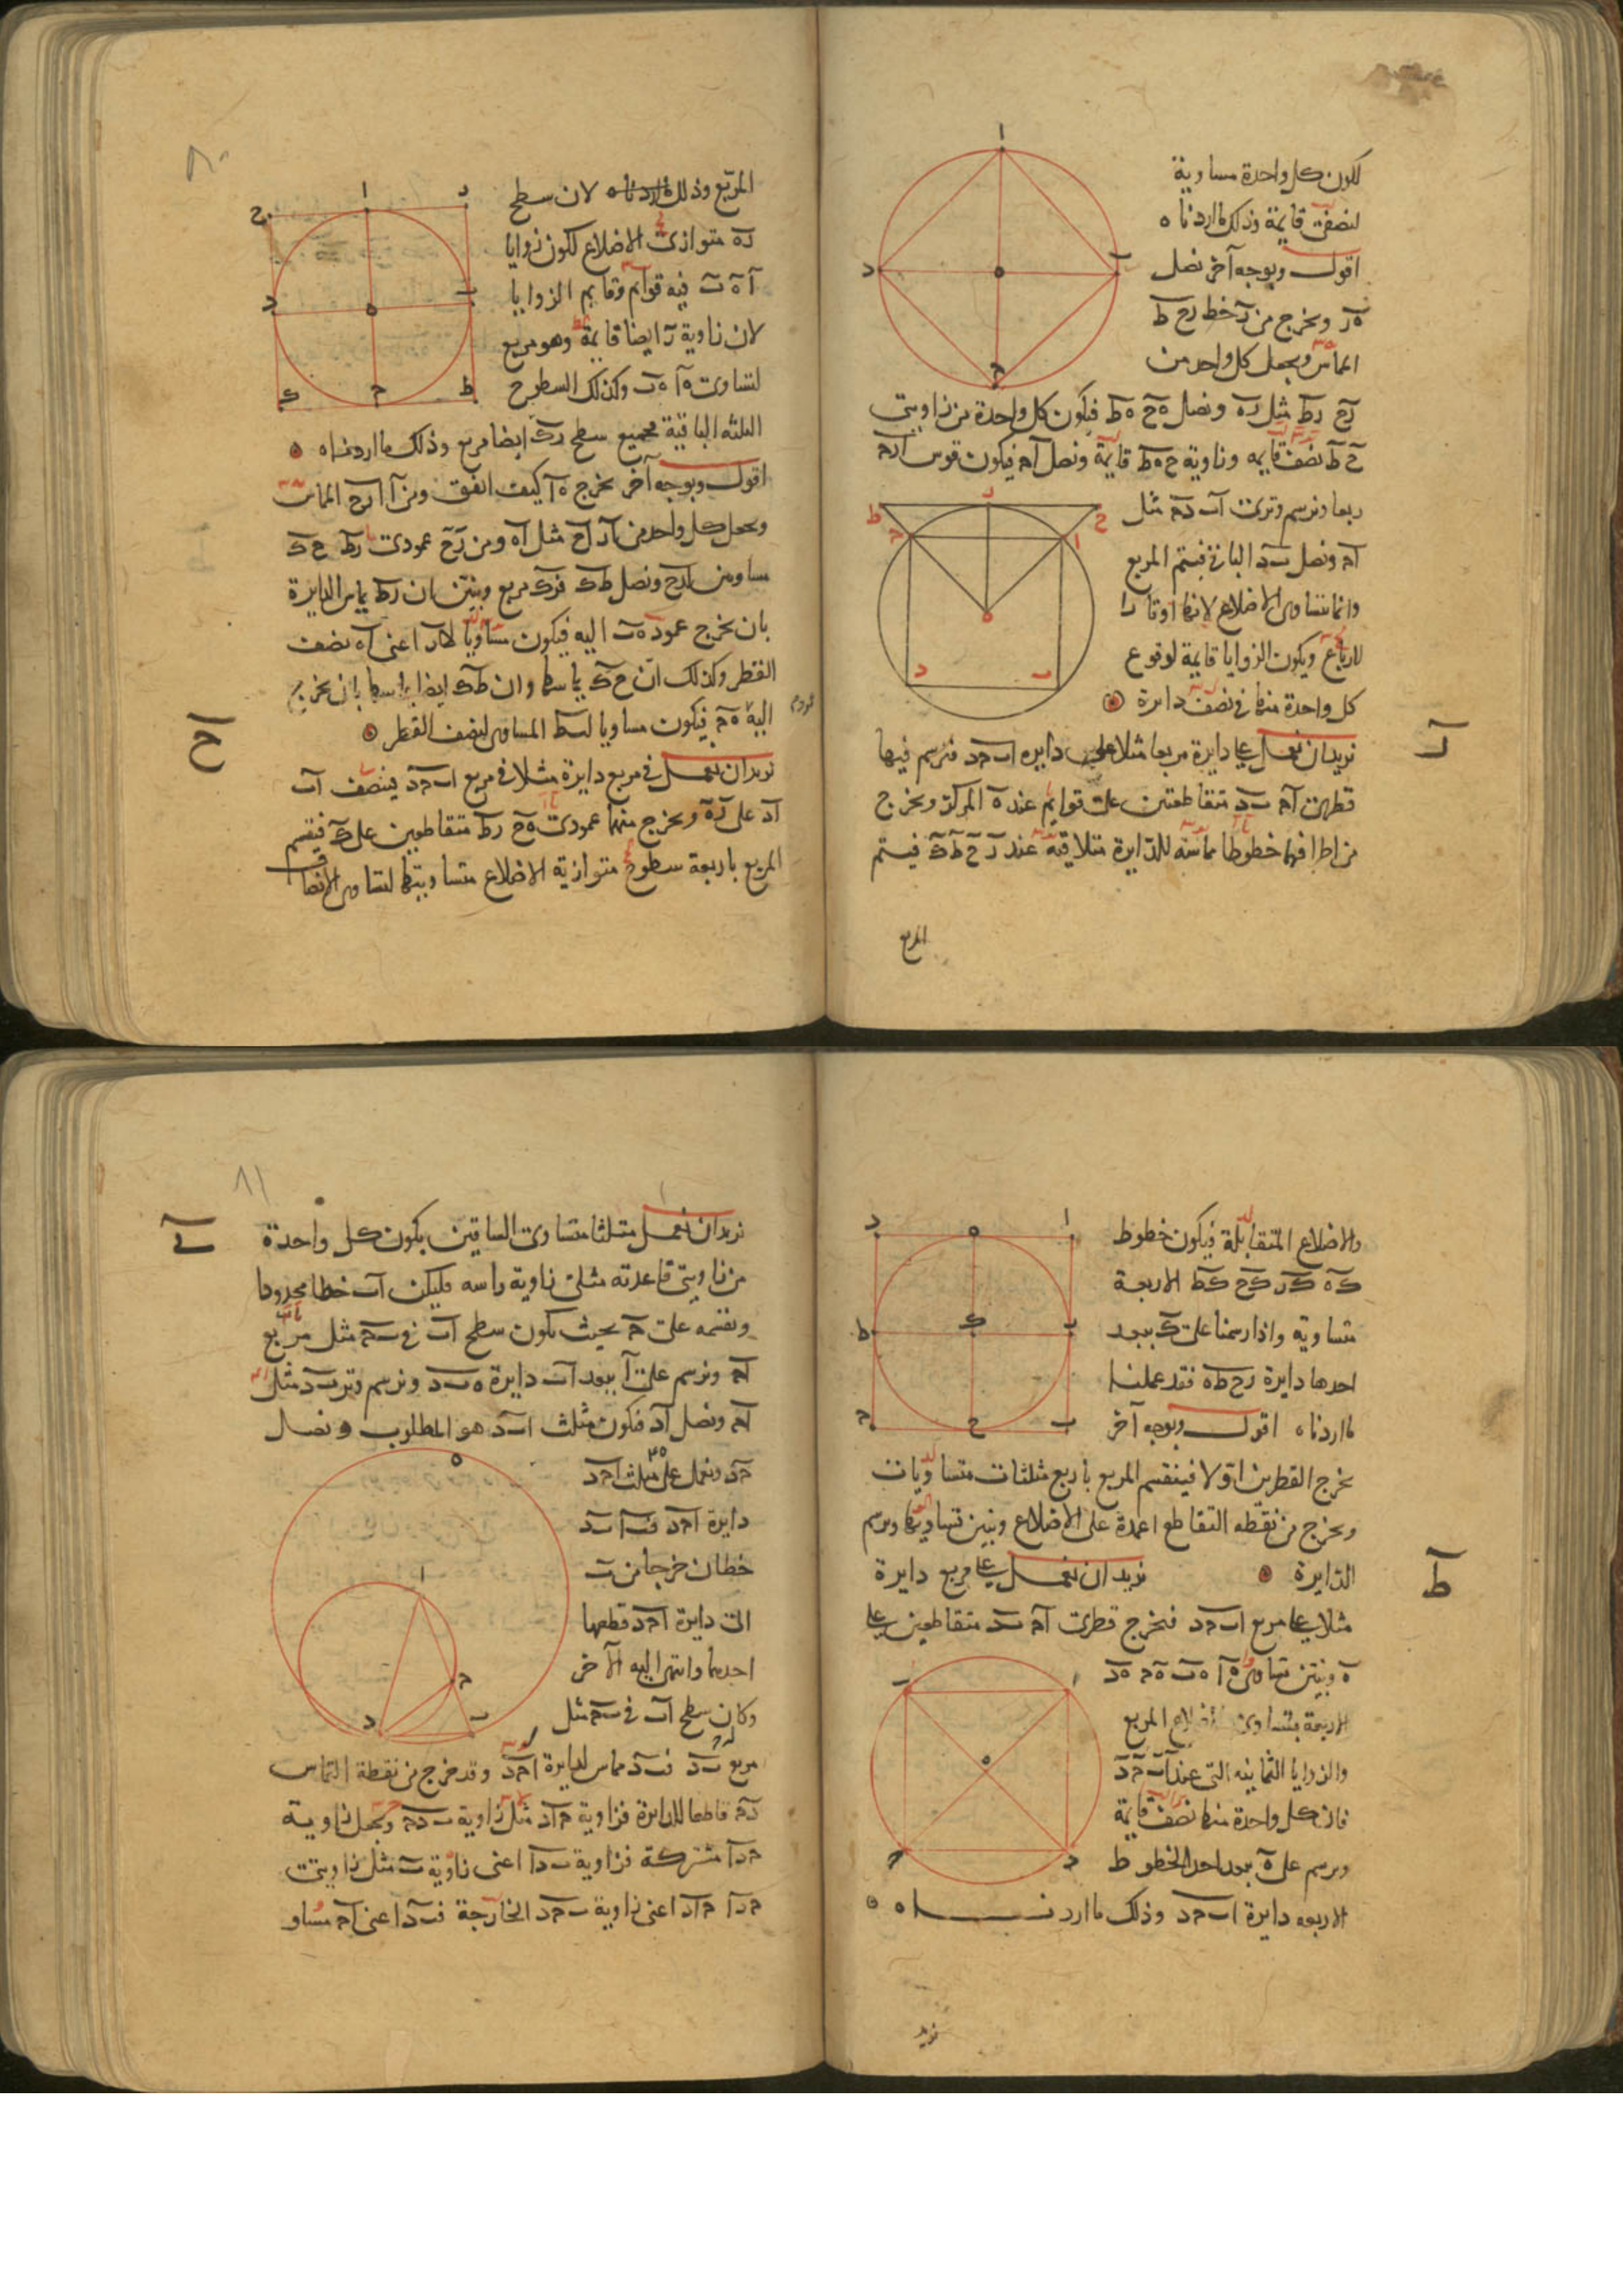 لكون كل واحدة مساوية
لنصف قايمة وذلك ما اردناه
اقول وبوجه آخر نصل
ه ر ونخرج من ر خط ر ح ط
المماس ونجعل كل واحد من
رح رط مثل ره ونصل ه ح ه ط فيكون كل واحدة من زاويتى
ح ط نصف قايمه وزاوية ح ه ط قايمة ونصل ا ح فيكون قوس ا ر ح
ربعا ونرسم وترى ا ب د ح مثل
ا ح ونصل ب د الباقى فيتم المربع
وانما تتساوى الاضلاع لانها اوتار
الارباع ويكون الزوايا قايمة لوقوع
كل واحدة منها فى نصف دايرة
ز
نريد ان نعمل على دايرة مربعا مثلا على دايره ا ب ح د فنرسم فيها
قطرى ا ح ب د متقاطعين على قوايم عند ه المركز ونخرج
من اطرافهما خطوطا مماسة للدايرة متلاقية عند ر ح ط ك فيتم
المربع
٨٠
المربع وذلك لان سطح
ر ه متوازى الاضلاع لكون زوايا
ا ه ب فيه قوايم وقايم الزوايا
لان زاوية ر ايضا قايمة وهو مربع
لتساوى ه ا ه ب وكذلك السطوح
الثلثه الباقية فجميع سطح ر ك ايضا مربع وذلك ما اردناه
اقول وبوجه آخر نخرج ه ا كيف اتفق ومن ا ا ر ح المماس
ونجعل كل واحد من ا ر ا ح مثل ا ه ومن ر ح عمودى ر ط ح ك
مساويين لرح ونصل ط ك فرك مربع ونبين ان ر ط يماس الدايرة
بان نخرج عمود ه ب اليه فيكون مساويا لار اعنى ا ه نصف
القطر وكذلك ان ح ك يماسها وان ط ك ايضا يماسها بان نخرج
اليه ه ح فيكون مساويا لـ ب ط المساوى لنصف القطر
ح
نريد ان نعمل فى مربع دايرة مثلا فى مربع ا ب ح د فينصف ا ب
ا د على ر ه ونخرج منهما عمودى ه ح ر ط متقاطعين على ك فيقسم
المربع باربعة سطوح متوازية الاضلاع متساويتها لتساوى الانصاف
والاضلاع المتقابلة فيكون خطوط
ك ه ك ر ك ح ك ط الاربعة
متساوية واذا رسمنا على ك ببعد
احدها دايرة ر ح ط ه فقد عملنا
ما اردناه اقول وبوجه آخر
نخرج القطرين اولا فينقسم المربع باربع مثلثات متساويات
ونخرج من نقطة التقاطع اعمدة على الاضلاع ونبين تساويها ونرسم
الدايرة نريد ان نعمل على مربع دايرة
ط
مثلا على مربع ا ب ح د فنخرج قطرى ا ح ب د متقاطعين على
ه ونبين تساوى ه ا ه ب ه ح ه د
الاربعة بتساوى اضلاع المربع
والزوايا الثمانيه التى عند ا ب ح د
فان كل واحدة منها نصف قايمة
ونرسم على ه ببعد احد الخطوط
الاربعه دايرة ا ب ح د وذلك ما اردناه
نريد
٨١
ى
نريد ان نعمل مثلثا متساوى الساقين يكون كل واحدة
من زاويتى قاعدته مثلى زاوية راسه فليكن ا ب خطا محدودا
ونقسمه على ح بحيث يكون سطح ا ب فى ب ح مثل مربع
ا ح ونرسم على ا ببعد ا ب دايرة ه ب د ونرسم وتر ب د مثل
ا ح ونصل ا د فيكون مثلث ا ب د هو المطلوب ونصل
ح د ونعمل على مثلث ا ح د
دايرة ا ح د فـ ب ا ب د
خطان خرجا من ب
الى دايرة ا ح د قطعها
احدهما وانتهى اليه الآخر
وكان سطح ا ب فى ب ح مثل
مربع ب د فـ ب د مماس لدايرة ا ح د وقد خرج من نقطة التماس
د ح قاطعا للدايرة فزاوية ح ا د مثل زاوية ب د ح ونجعل زاوية
ح د ا مشتركة فزاوية ب د ا اعنى زاوية ب مثل زاويتى
ح د ا ح ا د اعنى زاوية ب ح د الخارجة فـ ب د اعنى ا ح مساو